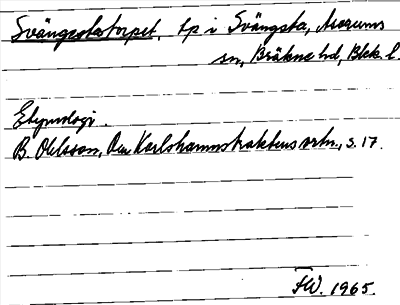 Svängstatorpet, tp i Svängsta, Asarums
sn, Bräkne hd, Blek. l.
Etymologi.
B. Ohlsson, Den Karlshamnstraktens ortn., s. 17.
FW. 1965.